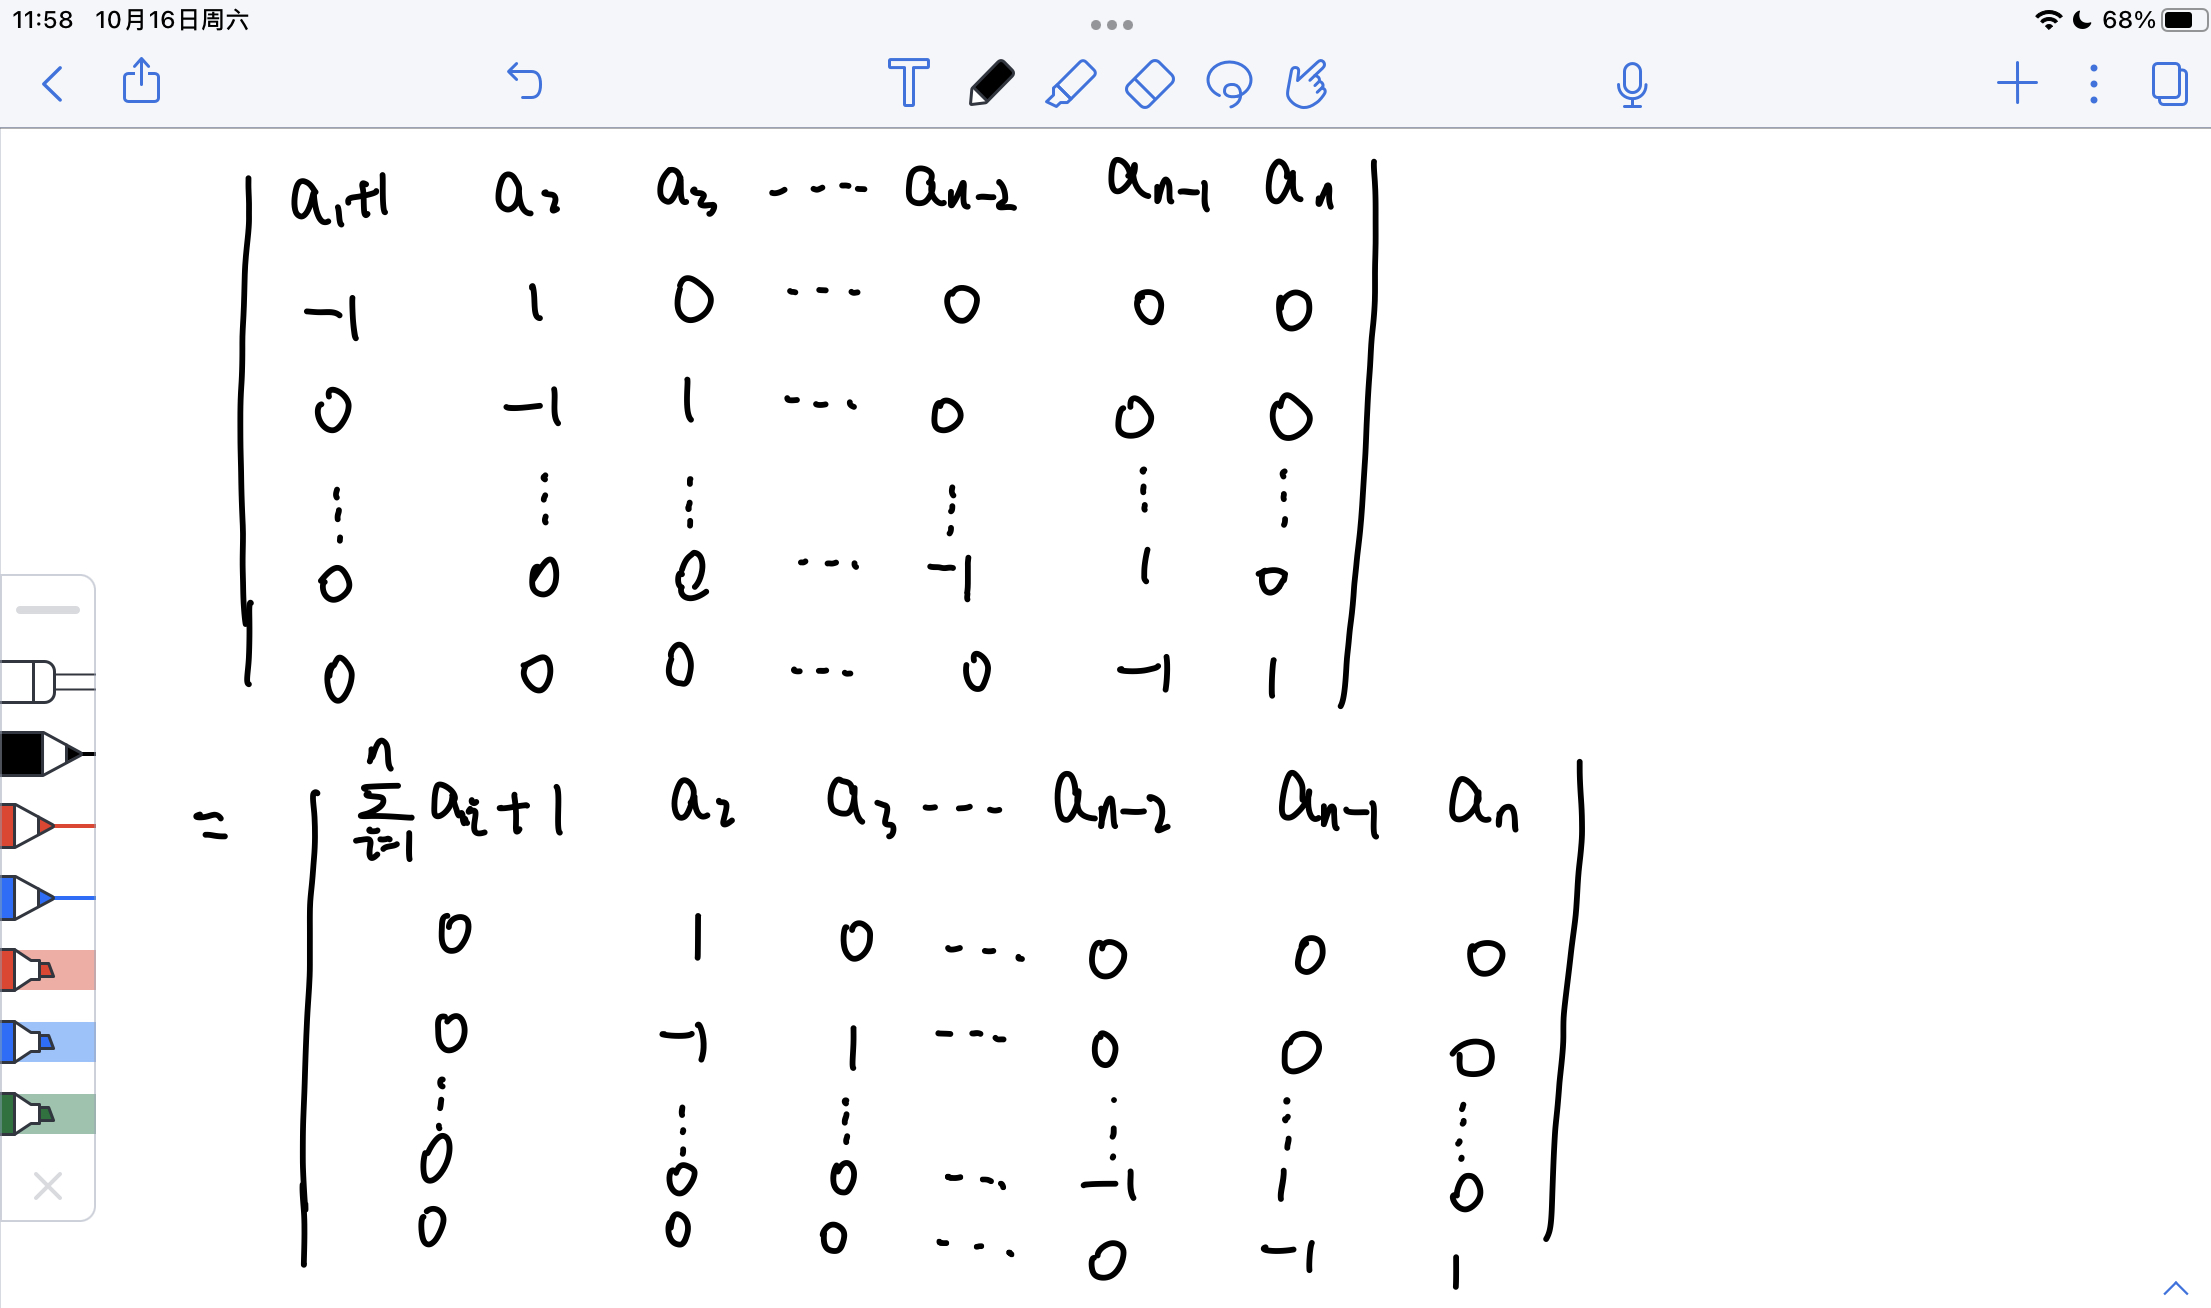 11:58 10月16日周六 68%
T
a₁+1 a₂ a₃ ---- aₙ₋₂ aₙ₋₁ aₙ
-1 1 0 --- 0 0 0
0 -1 1 --- 0 0 0
⋮ ⋮ ⋮ ⋮ ⋮ ⋮
0 0 0 --- -1 1 0
0 0 0 --- 0 -1 1
= ∑ᵢ₌₁ⁿ aᵢ+1 a₂ a₃ --- aₙ₋₂ aₙ₋₁ aₙ
0 1 0 --- 0 0 0
0 -1 1 --- 0 0 0
⋮ ⋮ ⋮ ⋮ ⋮ ⋮
0 0 0 --- -1 1 0
0 0 0 --- 0 -1 1